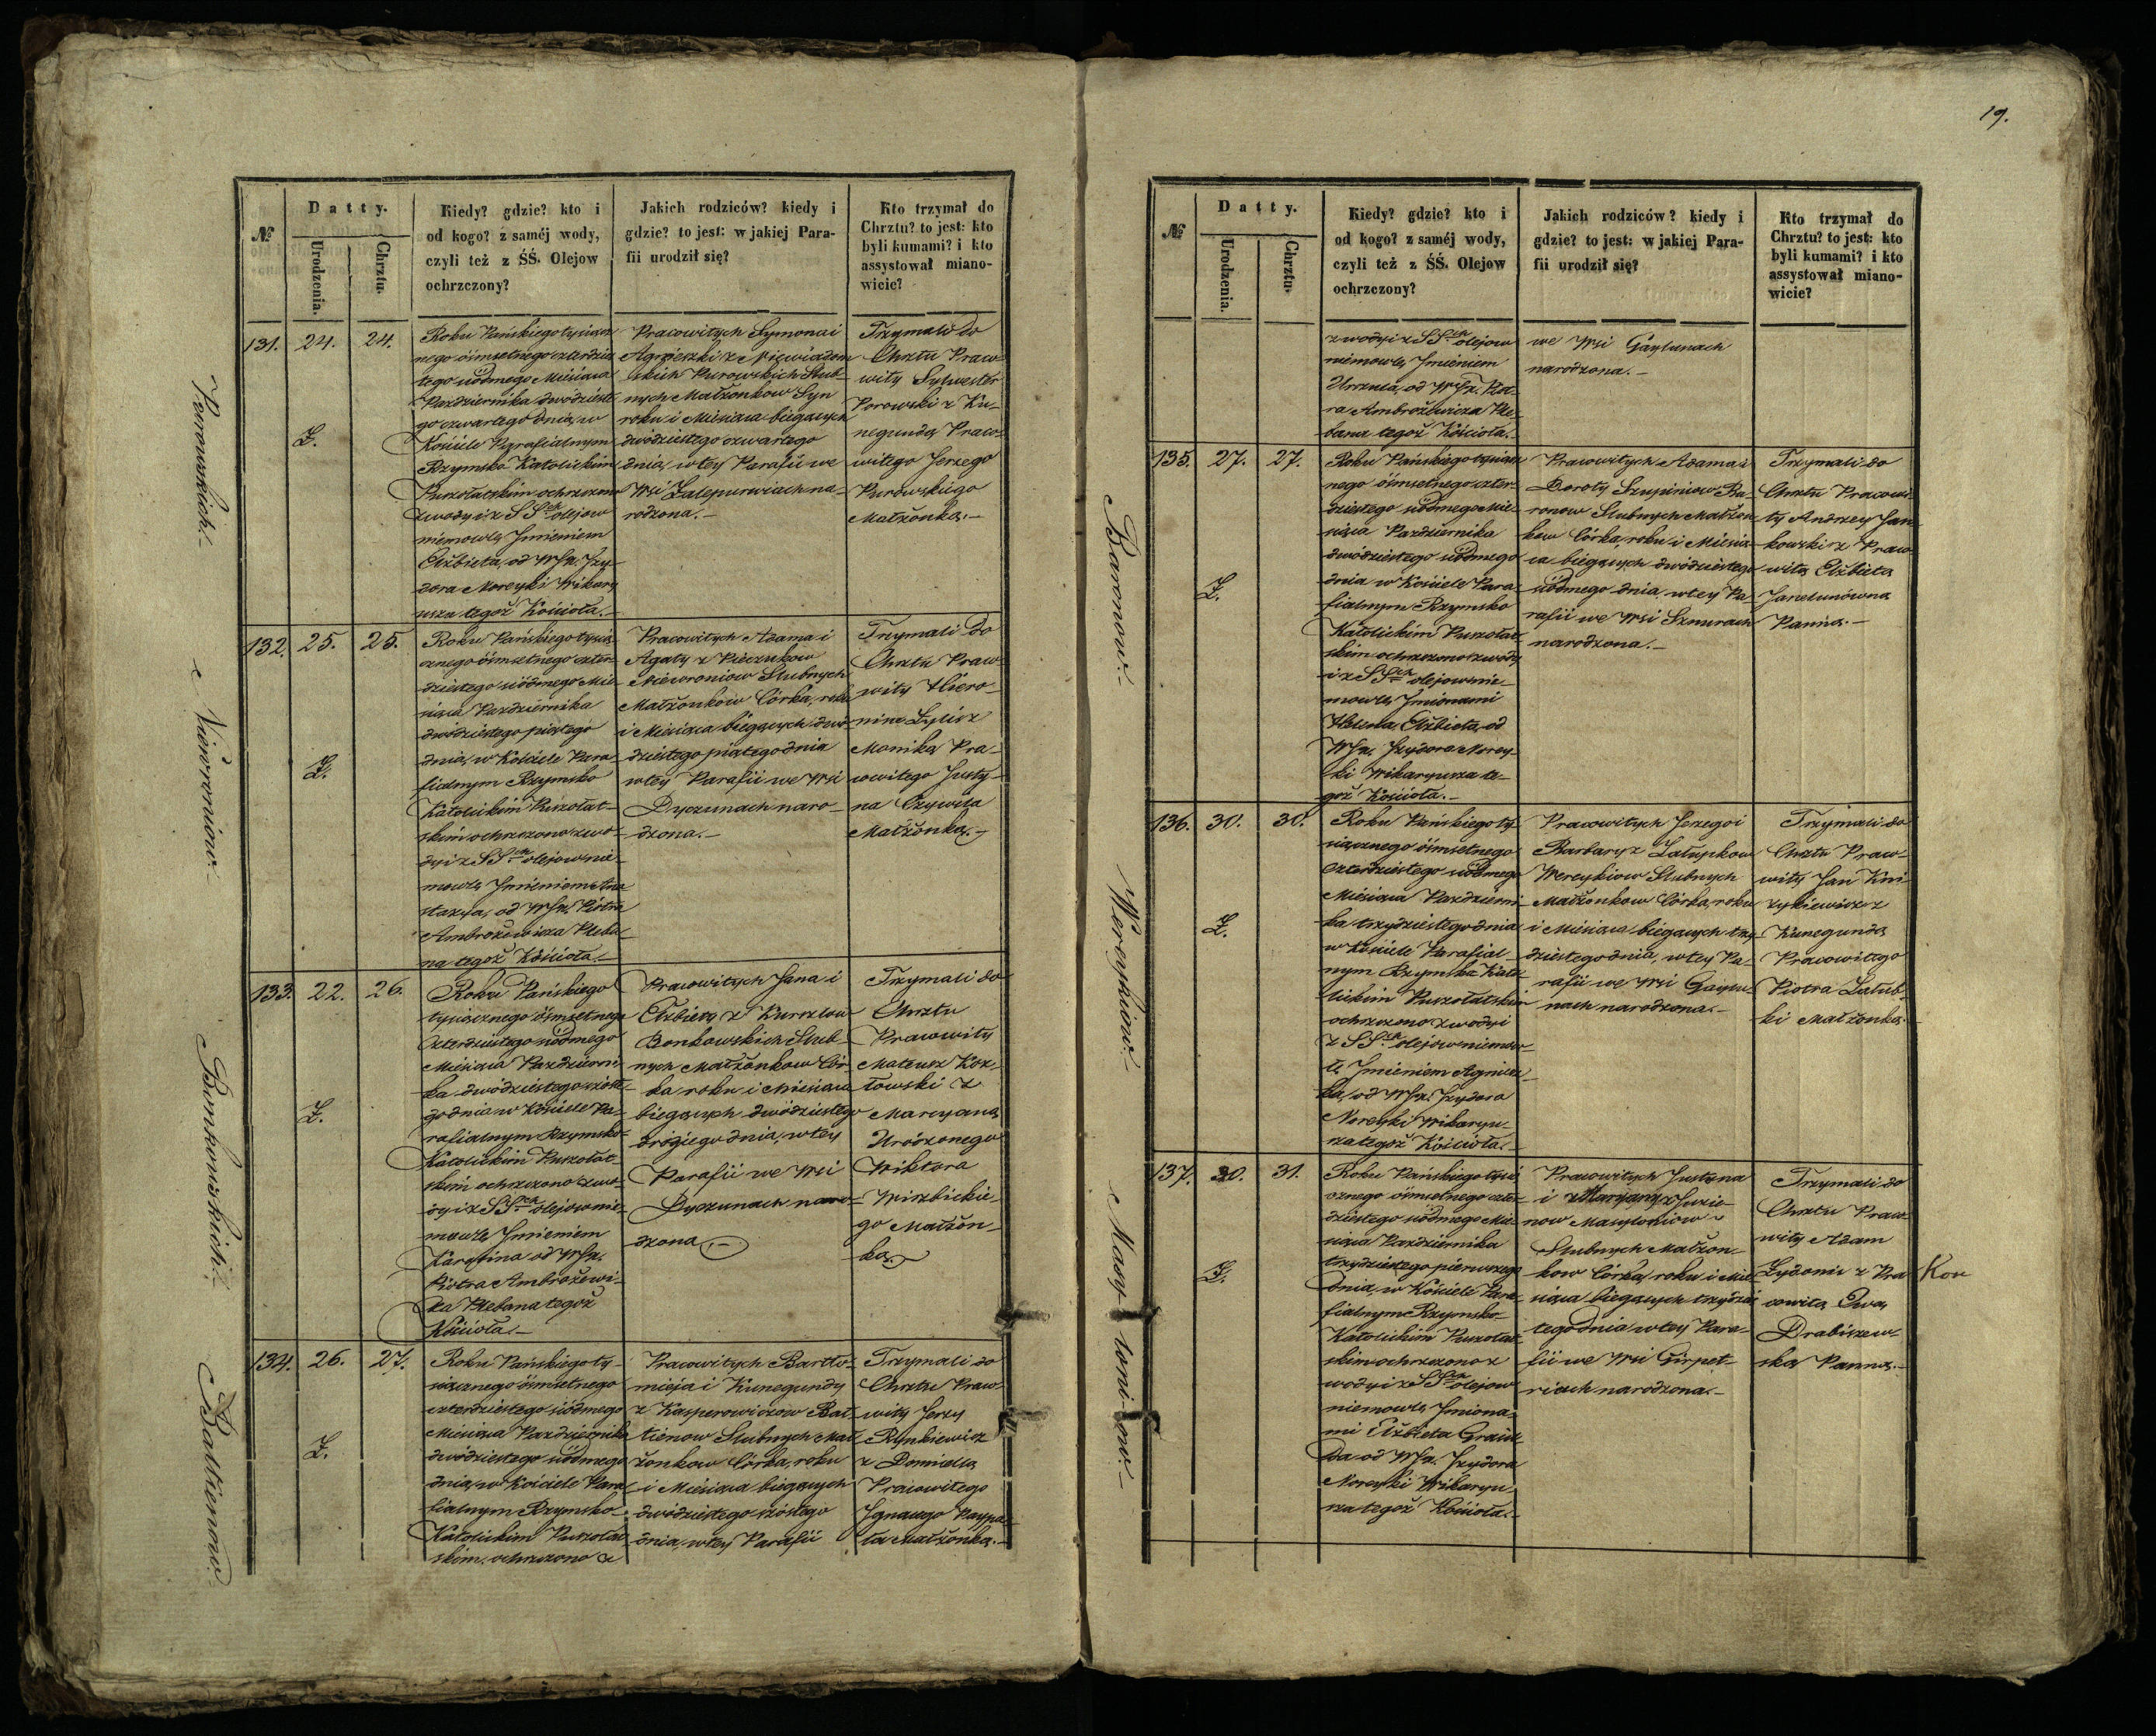 №
Datty.
Urodzenia.
Chrztu.
Kiedy? gdzie? kto i
od kogo? z saméj wody,
czyli też z ŚŚ. Olejow
ochrzczony?
Jakich rodziców? kiedy i
gdzie? to jest: w jakiej Para-
fii urodził się?
Kto trzymał do
Chrztu? to jest: kto
byli kumami? i kto
assystował miano-
wicie?
131. 24. 24.
Ż.
Roku Pańskiego tysiącz
nego ósmsetnego czterdzies
tego siódmego Miesiąca
Pazdziernika dwódzieste
go czwartego dnia, w
Kościele Parafialnym
Rzymsko Katolickim
Puszołatskim ochrzczono
z wody i z SSch olejow
niemowlę Jmieniem
Elżbieta, od WJX. Jzy-
dora Noreyki Wikary
usza tegoż Kościoła.
Pracowitych Symona i
Agnieszki z Niewiadom
skich Purowskich Slub-
nych Małżonkow Syn
roku i Miesiąca biegących
dwódziestego czwartego
dnia, w tey Parafii we
Wsi Zalepurwiach na-
rodzona.
Trzymali do
Chrztu Praco-
wity Sylwester
Porowski z Ku-
negundą Praco-
witego Jerzego
Purowskiego
Małżonką.
132. 25. 25.
Ż.
Roku Pańskiego tysią
cznego ósmsetnego czter-
dziestego siódmego Mie-
siąca Pazdziernika
dwódziestego piątego
dnia, w Kościele Para-
fialnym Rzymsko
Katolickim Puszołat-
skim ochrzczono z wo-
dy i z SSch olejow nie-
mowlę Jmieniem Ana
stazya, od WJX. Piotra
Ambrożewicza Pleba-
na tegoż Kościoła.
Pracowitych Adama i
Agaty z Pieczukow
Niewroniow Slubnych
Małżonkow Córka, roku
i Miesiąca biegących dwó-
dziestego piątego dnia
w tey Parafii we Wsi
Dyczunach naro-
dzona.
Trzymali do
Chrztu Praco-
wity Hiero-
nim Lylisz
Monika Pra-
cowitego Justy-
na Czywila
Małżonka.
133. 22. 26.
Ż.
Roku Pańskiego
tysiącznego ósmsetnego
czterdziestego siódmego
Miesiąca Pazdzierni-
ka dwódziestego szóste-
go dnia w Kościele Pa-
rafialnym Rzymsko-
Katolickim Puszołat-
skim ochrzczono z wo-
dy i z SSch olejow nie-
mowlę Jmieniem
Karolina od WJX.
Piotra Ambrożewi-
cza Plebana tegoż
Kościoła.
Pracowitych Jana i
Elżbiety z Kurszlow
Bonkowskich Slub-
nych Małżonkow Cór-
ka roku i Miesiąca
biegących dwódziestego
drógiego dnia, w tey
Parafii we Wsi
Dyczunach naro-
dzona.
Trzymali do
Chrztu
Pracowity
Mateusz Koz-
łowski z
Maryaną
Urodzonego
Wiktora
Wirzbickie-
go Małżon-
ką.
134. 26. 27.
Ż.
Roku Pańskiego ty-
siącznego ósmsetnego
czterdziestego siódmego
Miesiąca Pazdziernika
dwódziestego siódmego
dnia, w Kościele Para-
fialnym Rzymsko-
Katolickim Puszołat-
skim, ochrzczono z
Pracowitych Bartło-
mieja i Kunegundy
z Kasperowiczow Bał-
tienow Slubnych Mał-
żonkow Córka, roku
i Miesiąca biegących
dwódziestego szóstego
dnia, w tey Parafii
Trzymali do
Chrztu Praco-
wity Jerzy
Rynkiewicz
z Domicellą
Pracowitego
Jgnacego Raypa-
ła Małżonką.
Purowskich.
Niewroniow.
Bonkowskich.
Bałtienow.
19.
№
Datty.
Urodzenia.
Chrztu.
Kiedy? gdzie? kto i
od kogo? z saméj wody,
czyli też z ŚŚ. Olejow
ochrzczony?
Jakich rodziców? kiedy i
gdzie? to jest: w jakiej Para-
fii urodził się?
Kto trzymał do
Chrztu? to jest: kto
byli kumami? i kto
assystował miano-
wicie?
z wody i z SSch olejow
niemowlę Jmieniem
Urszula, od WJX. Piot-
ra Ambrożewicza Ple-
bana tegoż Kościoła.
we Wsi Gaylunach
narodzona.
135. 27. 27.
Ż.
Roku Pańskiego tysiącz
nego ósmsetnego czter-
dziestego siódmego Mie-
siąca Pazdziernika
dwódziestego siódmego
dnia w Kościele Para-
fialnym Rzymsko
Katolickim Puszołat-
skim ochrzczono z wody
i z SSch olejow nie-
mowlę Jmionami
Helena, Elżbieta, od
WJX. Jzydora Norey-
ki Wikaryusza te-
goż Kościoła.
Pracowitych Adama i
Doroty Szupiniow Ba-
ronow Slubnych Małżon
kow Córka, roku i Miesią-
ca biegących dwódziestego
siódmego dnia, w tey Pa-
rafii we Wsi Sznurach
narodzona.
Trzymali do
Chrztu Pracowi-
ty Andrzey Jan-
kowski z Praco-
witą Elżbietą
Janelunówną
Panną.
136. 30. 30.
Ż.
Roku Pańskiego ty-
siącznego ósmsetnego
czterdziestego siódmego
Miesiąca Pazdzierni-
ka trzydziestego dnia
w Kościele Parafial-
nym Rzymsko Kato-
lickim Puszołatskim
ochrzczono z wody i
z SSch olejow niemow-
lę Jmieniem Agniesz-
ka, od WJX. Jzydora
Noreyki Wikaryu-
sza tegoż Kościoła.
Pracowitych Jerzego i
Barbary z Łatupkow
Wereykiow Slubnych
Małżonkow Córka, roku
i Miesiąca biegących trzy-
dziestego dnia, w tey Pa-
rafii we Wsi Gaylu-
nach narodzona.
Trzymali do
Chrztu Praco-
wity Jan Kni-
zykiewicz z
Kunegundą
Pracowitego
Piotra Łatub-
ki Małżonką.
137. 30. 31.
Ż.
Roku Pańskiego tysią-
cznego ósmsetnego czter-
dziestego siódmego Mie-
siąca Pazdziernika
trzydziestego pierwszego
dnia, w Kościele Para-
fialnym Rzymsko-
Katolickim Puszołat-
skim ochrzczono z
wody i z SSch olejow
niemowlę Jmiona-
mi Elżbieta
da od WJX. Jzydora
Noreyki Wikaryu-
sza tegoż Kościoła.
Pracowitych Justyna
i Maryany z
now Masyloniow
Slubnych Małżon-
kow Córka, roku i Mie-
siąca biegących trzydzies
tego dnia w tey Para-
fii we Wsi Girpet-
riach narodzona.
Trzymali do
Chrztu Praco-
wity Adam
Zydonis z Pra
cowitą Ewą
Drabiszew-
ską Panną.
Kon
Baronow.
Wereykiow.
Masy loniow.